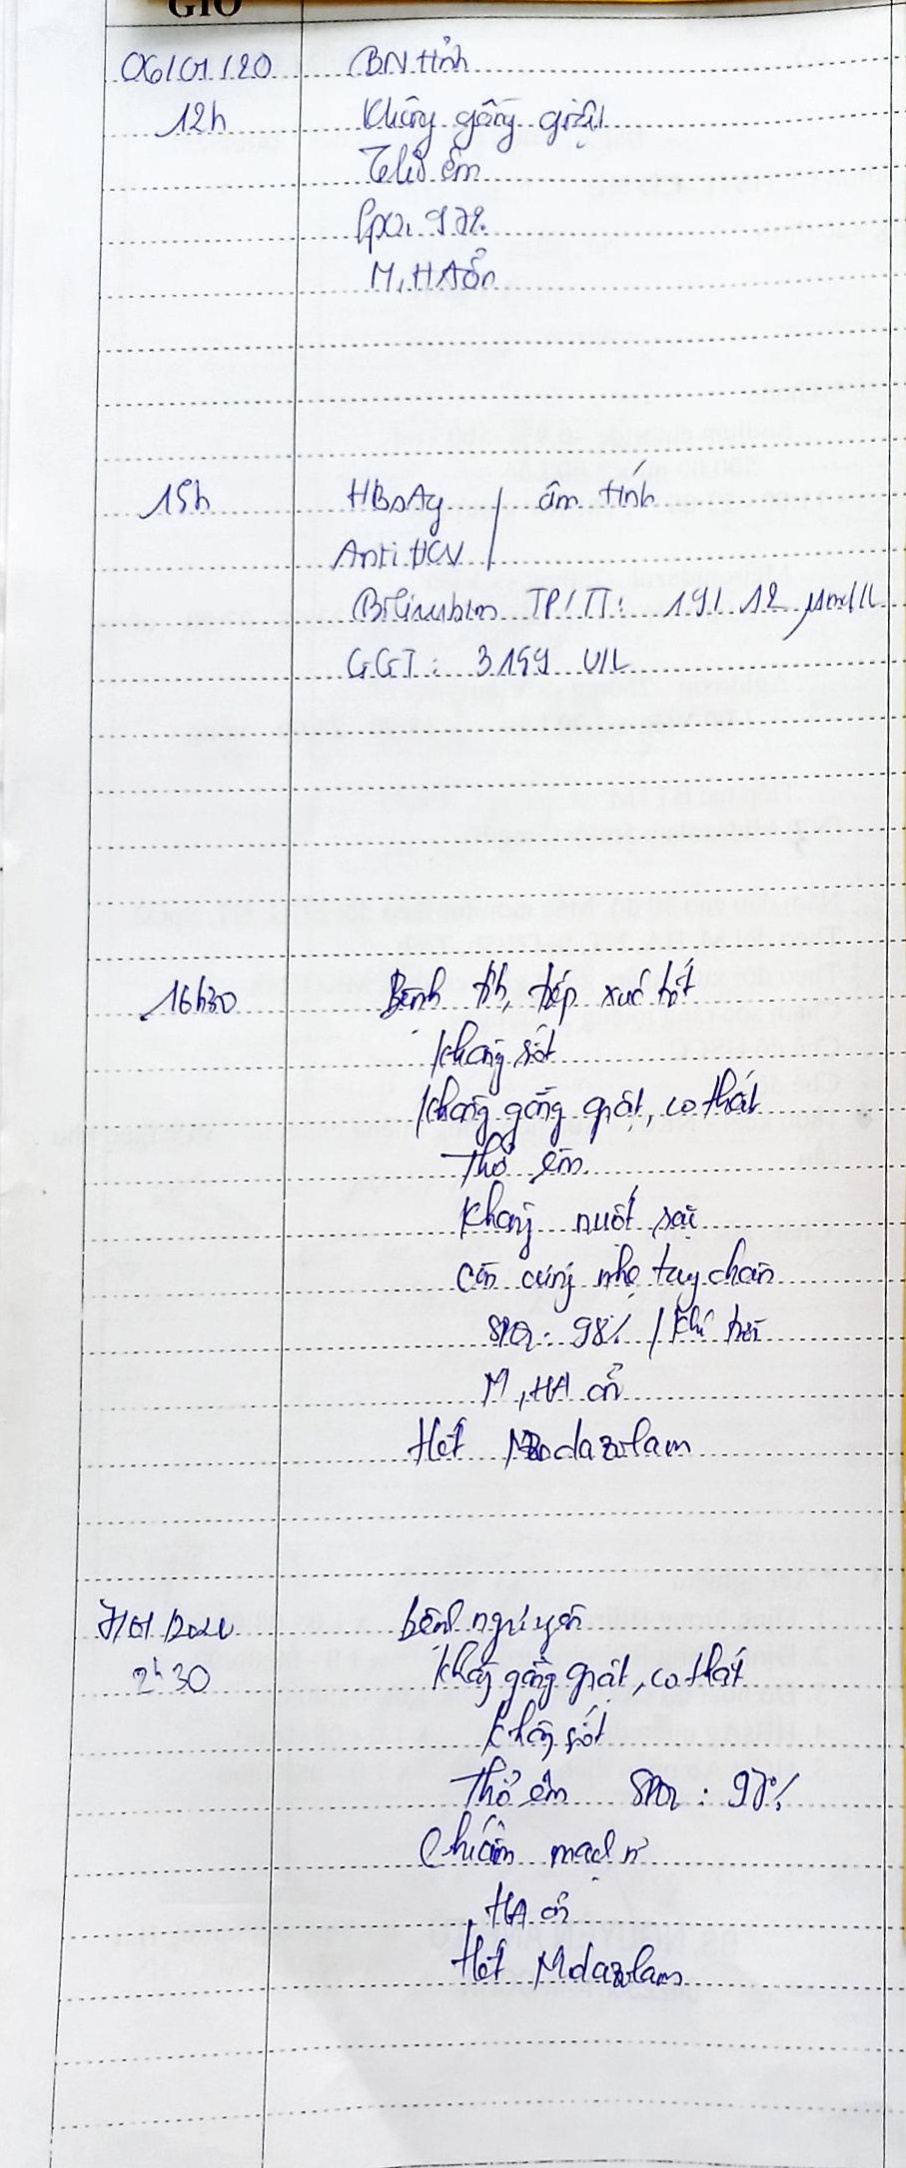 GIỜ
06/01/20 BN tỉnh
12h Không gồng giật
Thở êm
SpO2 97%
M, HA ổn
15h HBsAg / âm tính
Anti HCV
Bilirubin TP/TT: 19/ 12 µmol/L
GGT: 3159 U/L
16h30 Bệnh tỉnh, tiếp xúc tốt
Không sốt
Không gồng giật, co thắt
Thở êm
Không nuốt sặc
Còn cứng nhẹ tay chân
SpO2: 98% / khí trời
M, HA ổn
Hết Midazolam
7/01/2020 bệnh ngủ yên
2h30 Không gồng giật, co thắt
Không sốt
Thở êm SpO2: 97%
Chi ấm mạch rõ
HA ổn
Hết Midazolam